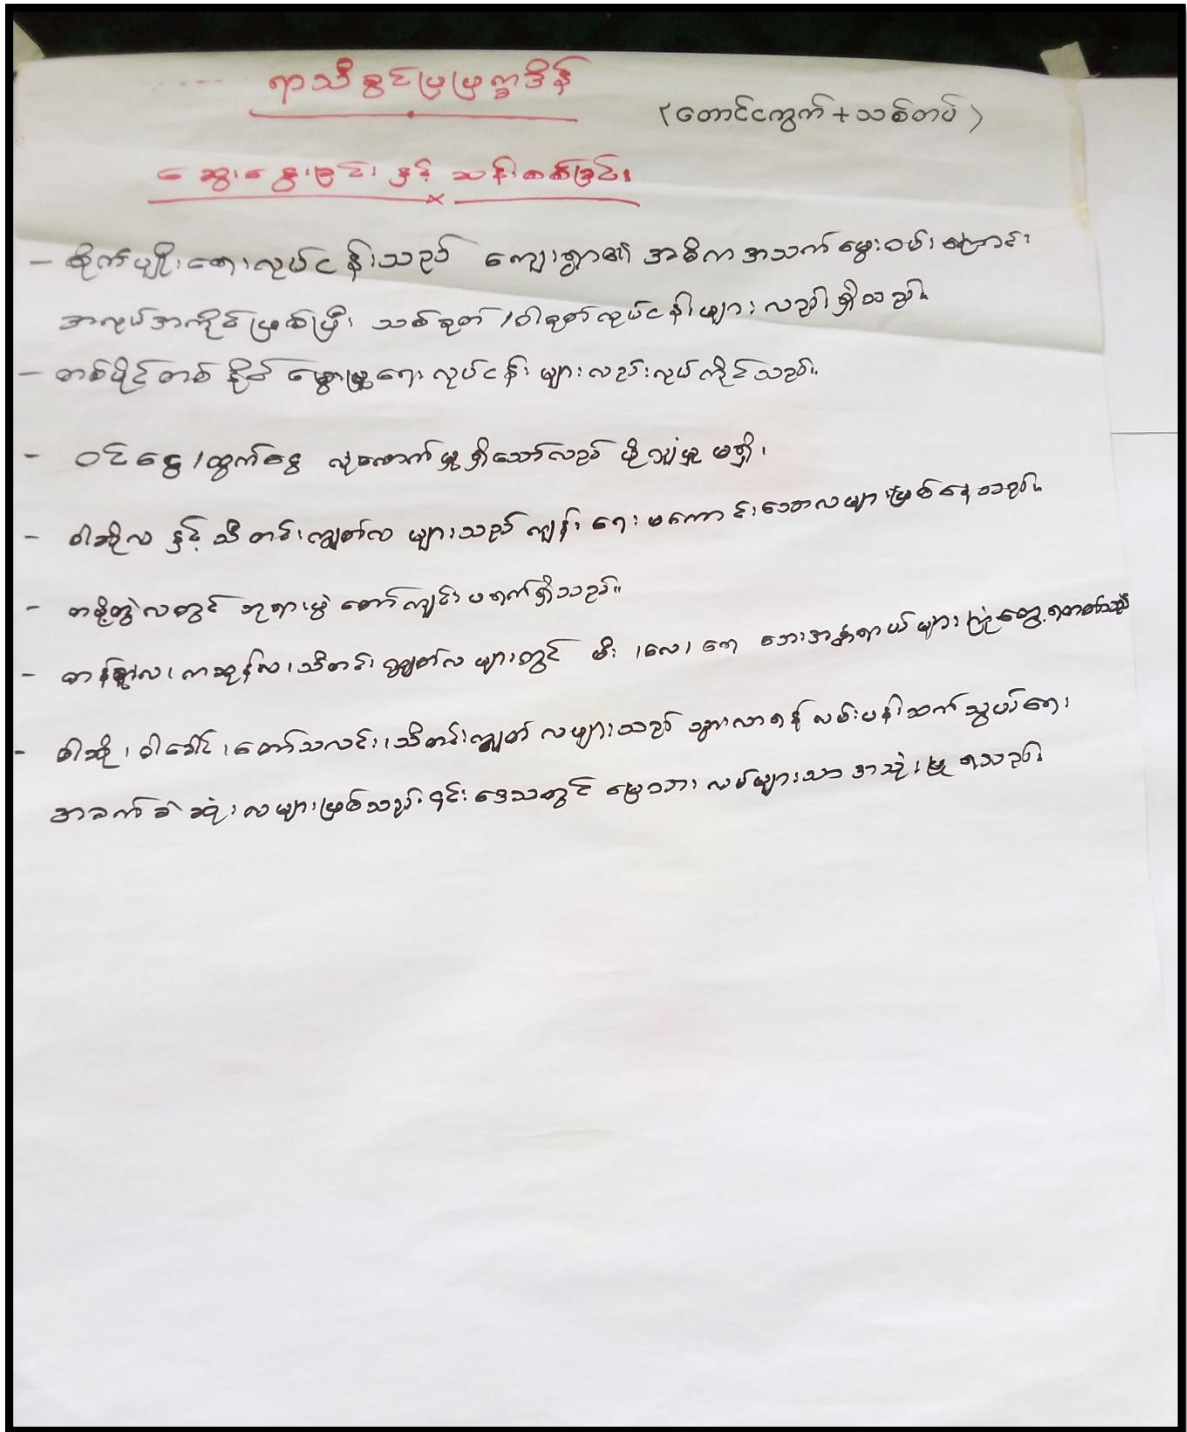 ရာသီခွင်ပြပြက္ခဒိန်
(တောင်ငကွက်+သစ်တပ်)
ဆွေးနွေးခြင်း နှင့် သန်းစစ်ခြင်း
- စိုက်ပျိုးရေးလုပ်ငန်းသည် ကျေးရွာ၏ အဓိက အသက်မွေးဝမ်းကြောင်း
အလုပ်အကိုင်ဖြစ်ပြီး သစ်ခုတ်/ဝါးခုတ်လုပ်ငန်းများ လည်းရှိသည်။
- တစ်ပိုင်တစ်နိုင် မွေးမြူရေး လုပ်ငန်း များလည်းလုပ်ကိုင်သည်။
- ဝင်ငွေ/ထွက်ငွေ လုံလောက်မှုရှိသော်လည်း ပိုလျှံမှု မရှိ၊
- ဝါဆိုလ နှင့် သီတင်းကျွတ်လ များသည် ကျန်းရေး မကောင်းသောလများဖြစ်နေသည်။
- တပို့တွဲလတွင် ဘုရားပွဲ တော်ကျင်းပရက်ရှိသည်။
- တန်ခူးလ၊ ကဆုန်လ၊ သီတင်းကျွတ်လ များတွင် မီး၊လေ၊ရေ ဘေးအန္တရာယ်များ ကြုံတွေ့ရတတ်သည်
- ဝါဆို၊ ဝါခေါင်၊ တော်သလင်း၊ သီတင်းကျွတ် လများသည် သွားလာရန် လမ်းပန်းဆက်သွယ်ရေး
အခက်ခဲဆုံး လများဖြစ်သည်။ ၎င်းဒေသတွင် မြေသား လမ်းများသာ အသုံးပြုရသည်။